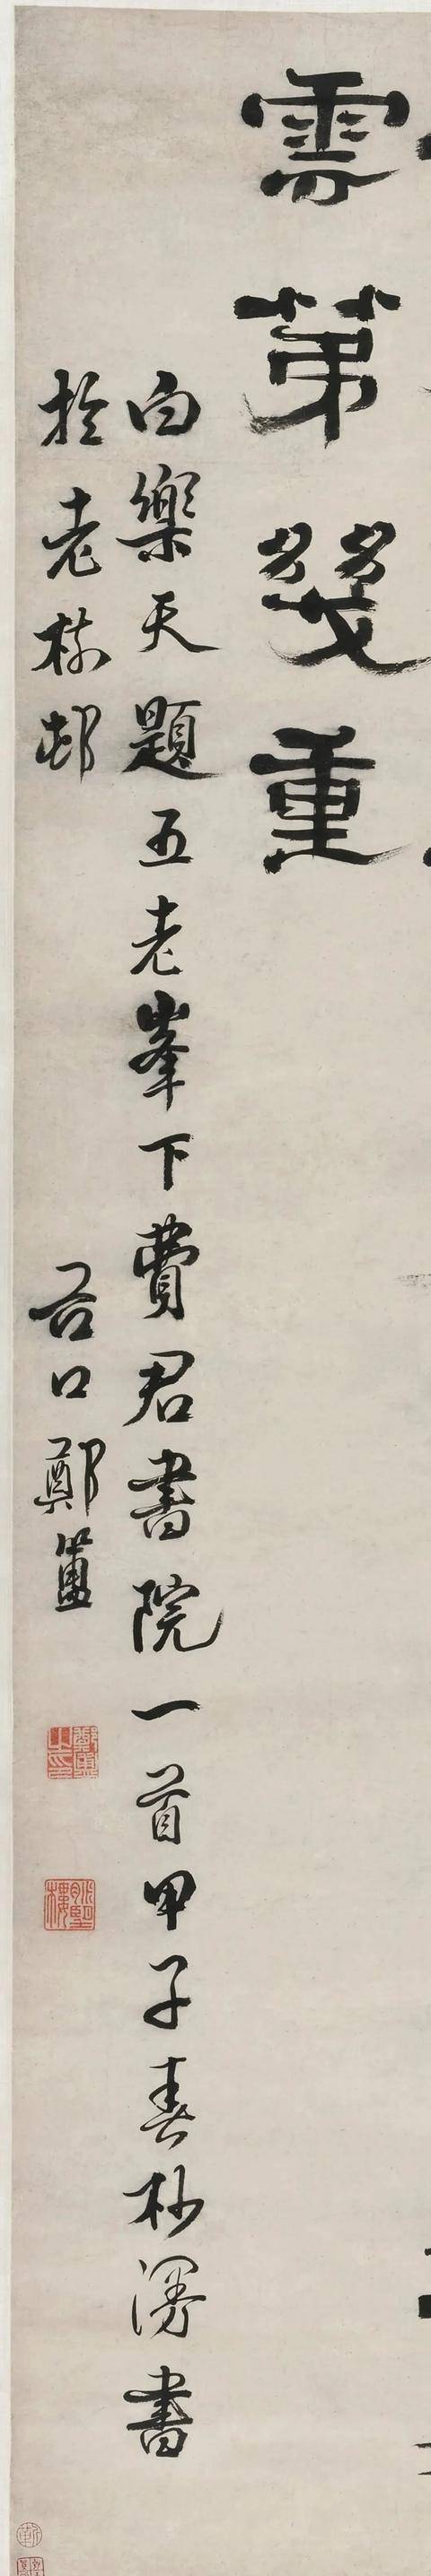 雲苐幾重
白樂天題五老峯下費君書院一首甲子春杪漫書
於老梅邨 谷口鄭簠
鄭簠之印